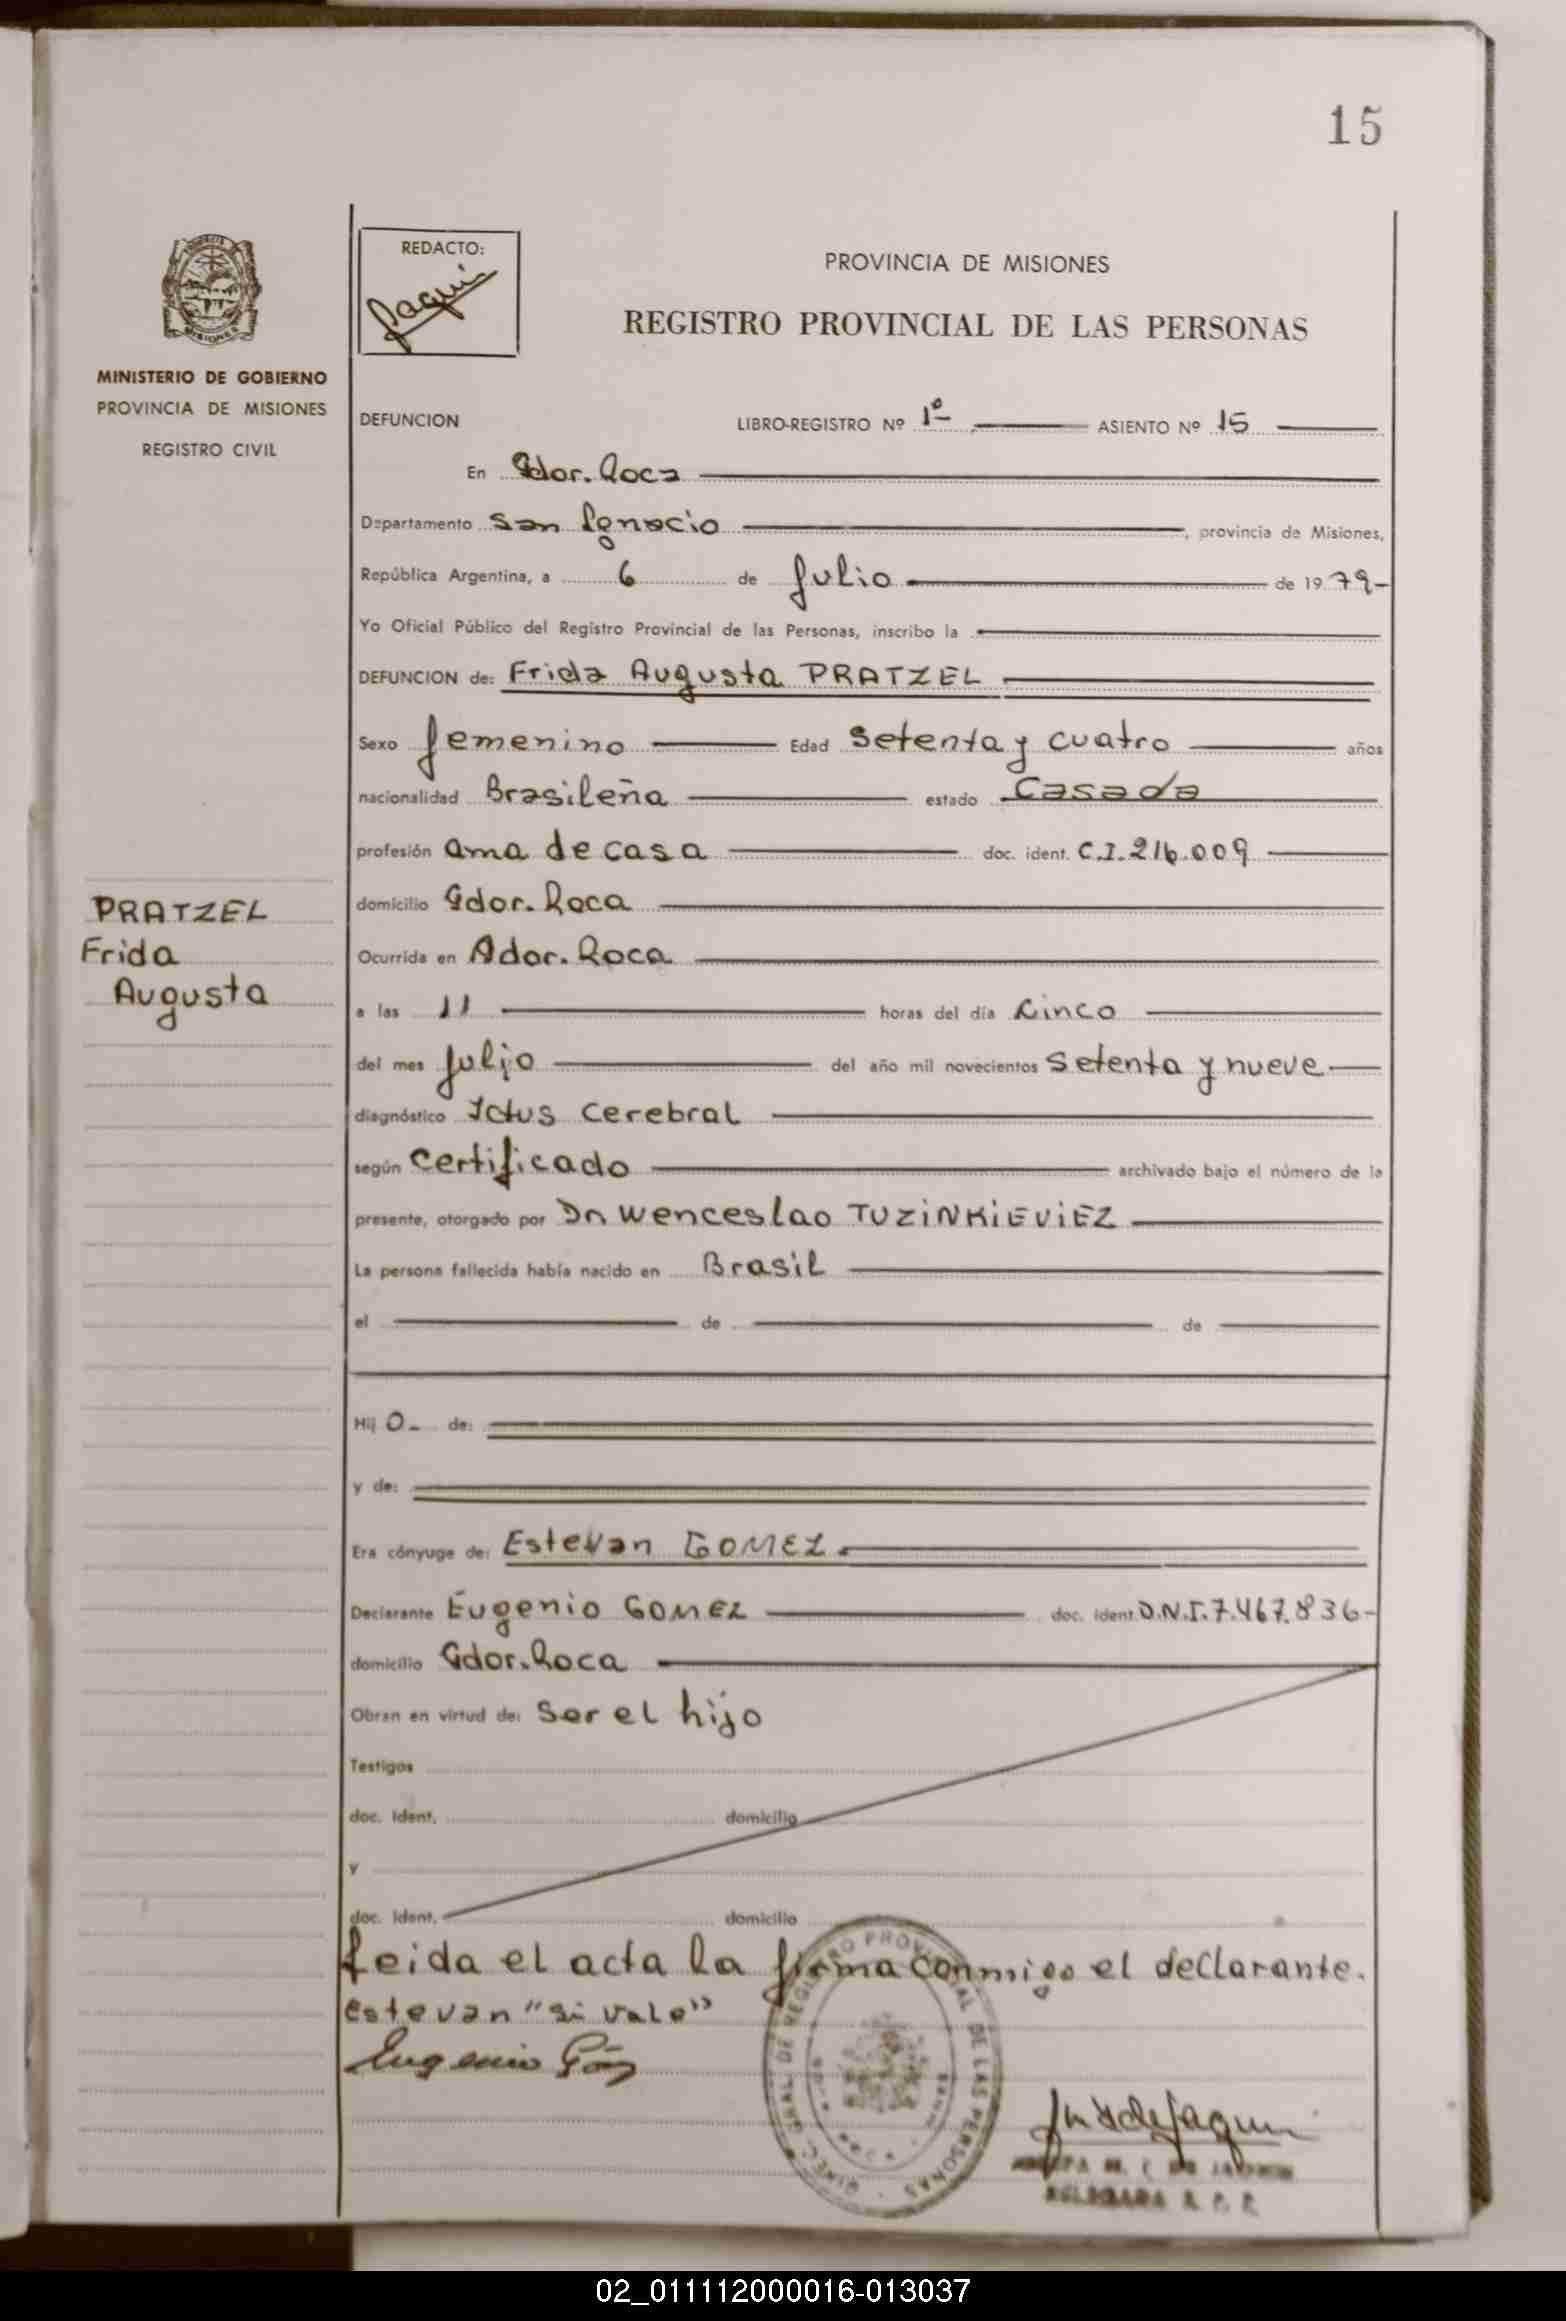 15
REDACTO:
Jaquin
PROVINCIA DE MISIONES
REGISTRO PROVINCIAL DE LAS PERSONAS
MINISTERIO DE GOBIERNO
PROVINCIA DE MISIONES
REGISTRO CIVIL
DEFUNCION LIBRO-REGISTRO Nº 1º ASIENTO Nº 15
En Gdor. Roca
Departamento San Ignacio, provincia de Misiones,
República Argentina, a 6 de Julio de 1979-
Yo Oficial Público del Registro Provincial de las Personas, inscribo la
DEFUNCION de: Frida Augusta PRATZEL
Sexo femenino Edad Setenta y cuatro años
nacionalidad Brasileña estado Casada
profesión ama de casa doc. ident. C.I.216.009
PRATZEL
Frida
Augusta
domicilio Gdor. Roca
Ocurrida en Gdor. Roca
a las 11 horas del día Cinco
del mes Julio del año mil novecientos Setenta y nueve
diagnóstico Ictus Cerebral
según Certificado archivado bajo el número de la
presente, otorgado por Dr Wenceslao TUZINKIEVIEZ
La persona fallecida había nacido en Brasil
el de de
Hij o- de:
y de:
Era cónyuge de: Estevan GOMEZ.
Declarante Eugenio GOMEZ doc. ident. D.N.I.7.467.836-
domicilio Gdor. Roca
Obran en virtud de: Ser el hijo
Testigos
doc. ident. domicilio
y
doc. ident. domicilio
Leida el acta la firma conmigo el declarante.
Estevan "Si vale"
Eugenio
DIREC. GRAL. DE REGISTRO PROVINCIAL DE LAS PERSONAS
DELEGADA R. P. P.
02_011112000016-013037